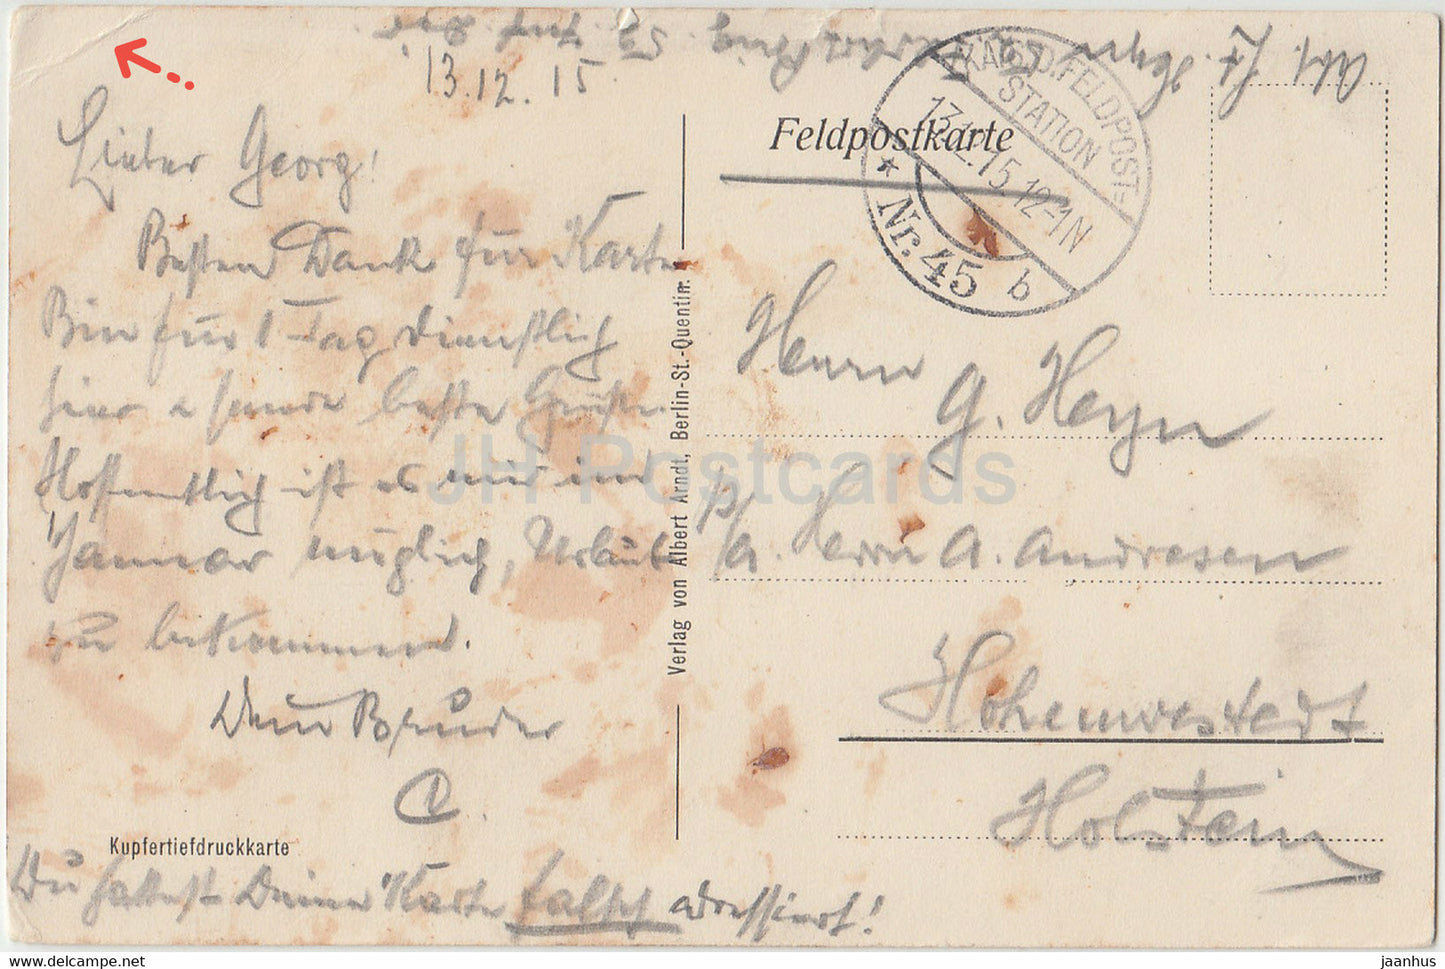 13.12.15
Lieber Georg!
Besten Dank für Karte
Bin für 1 Tag dienstlich
hier u sende beste Grüße.
Hoffentlich ist es mir im
Januar möglich, Urlaub
zu bekommen.
Dein Bruder
Kupfertiefdruckkarte
Du hattest Deine Karte falsch adressiert!
Verlag von Albert Arndt, Berlin-St.-Quentin.
Feldpostkarte
KAIS. D. FELDPOST-
STATION
13.12.15.12-1N
* Nr. 45 b
Herrn
G. Heyn
p/a. Herrn A. Andresen
Hohenwestedt
Holstein
JH Postcards
jaanhus @ delcampe.net